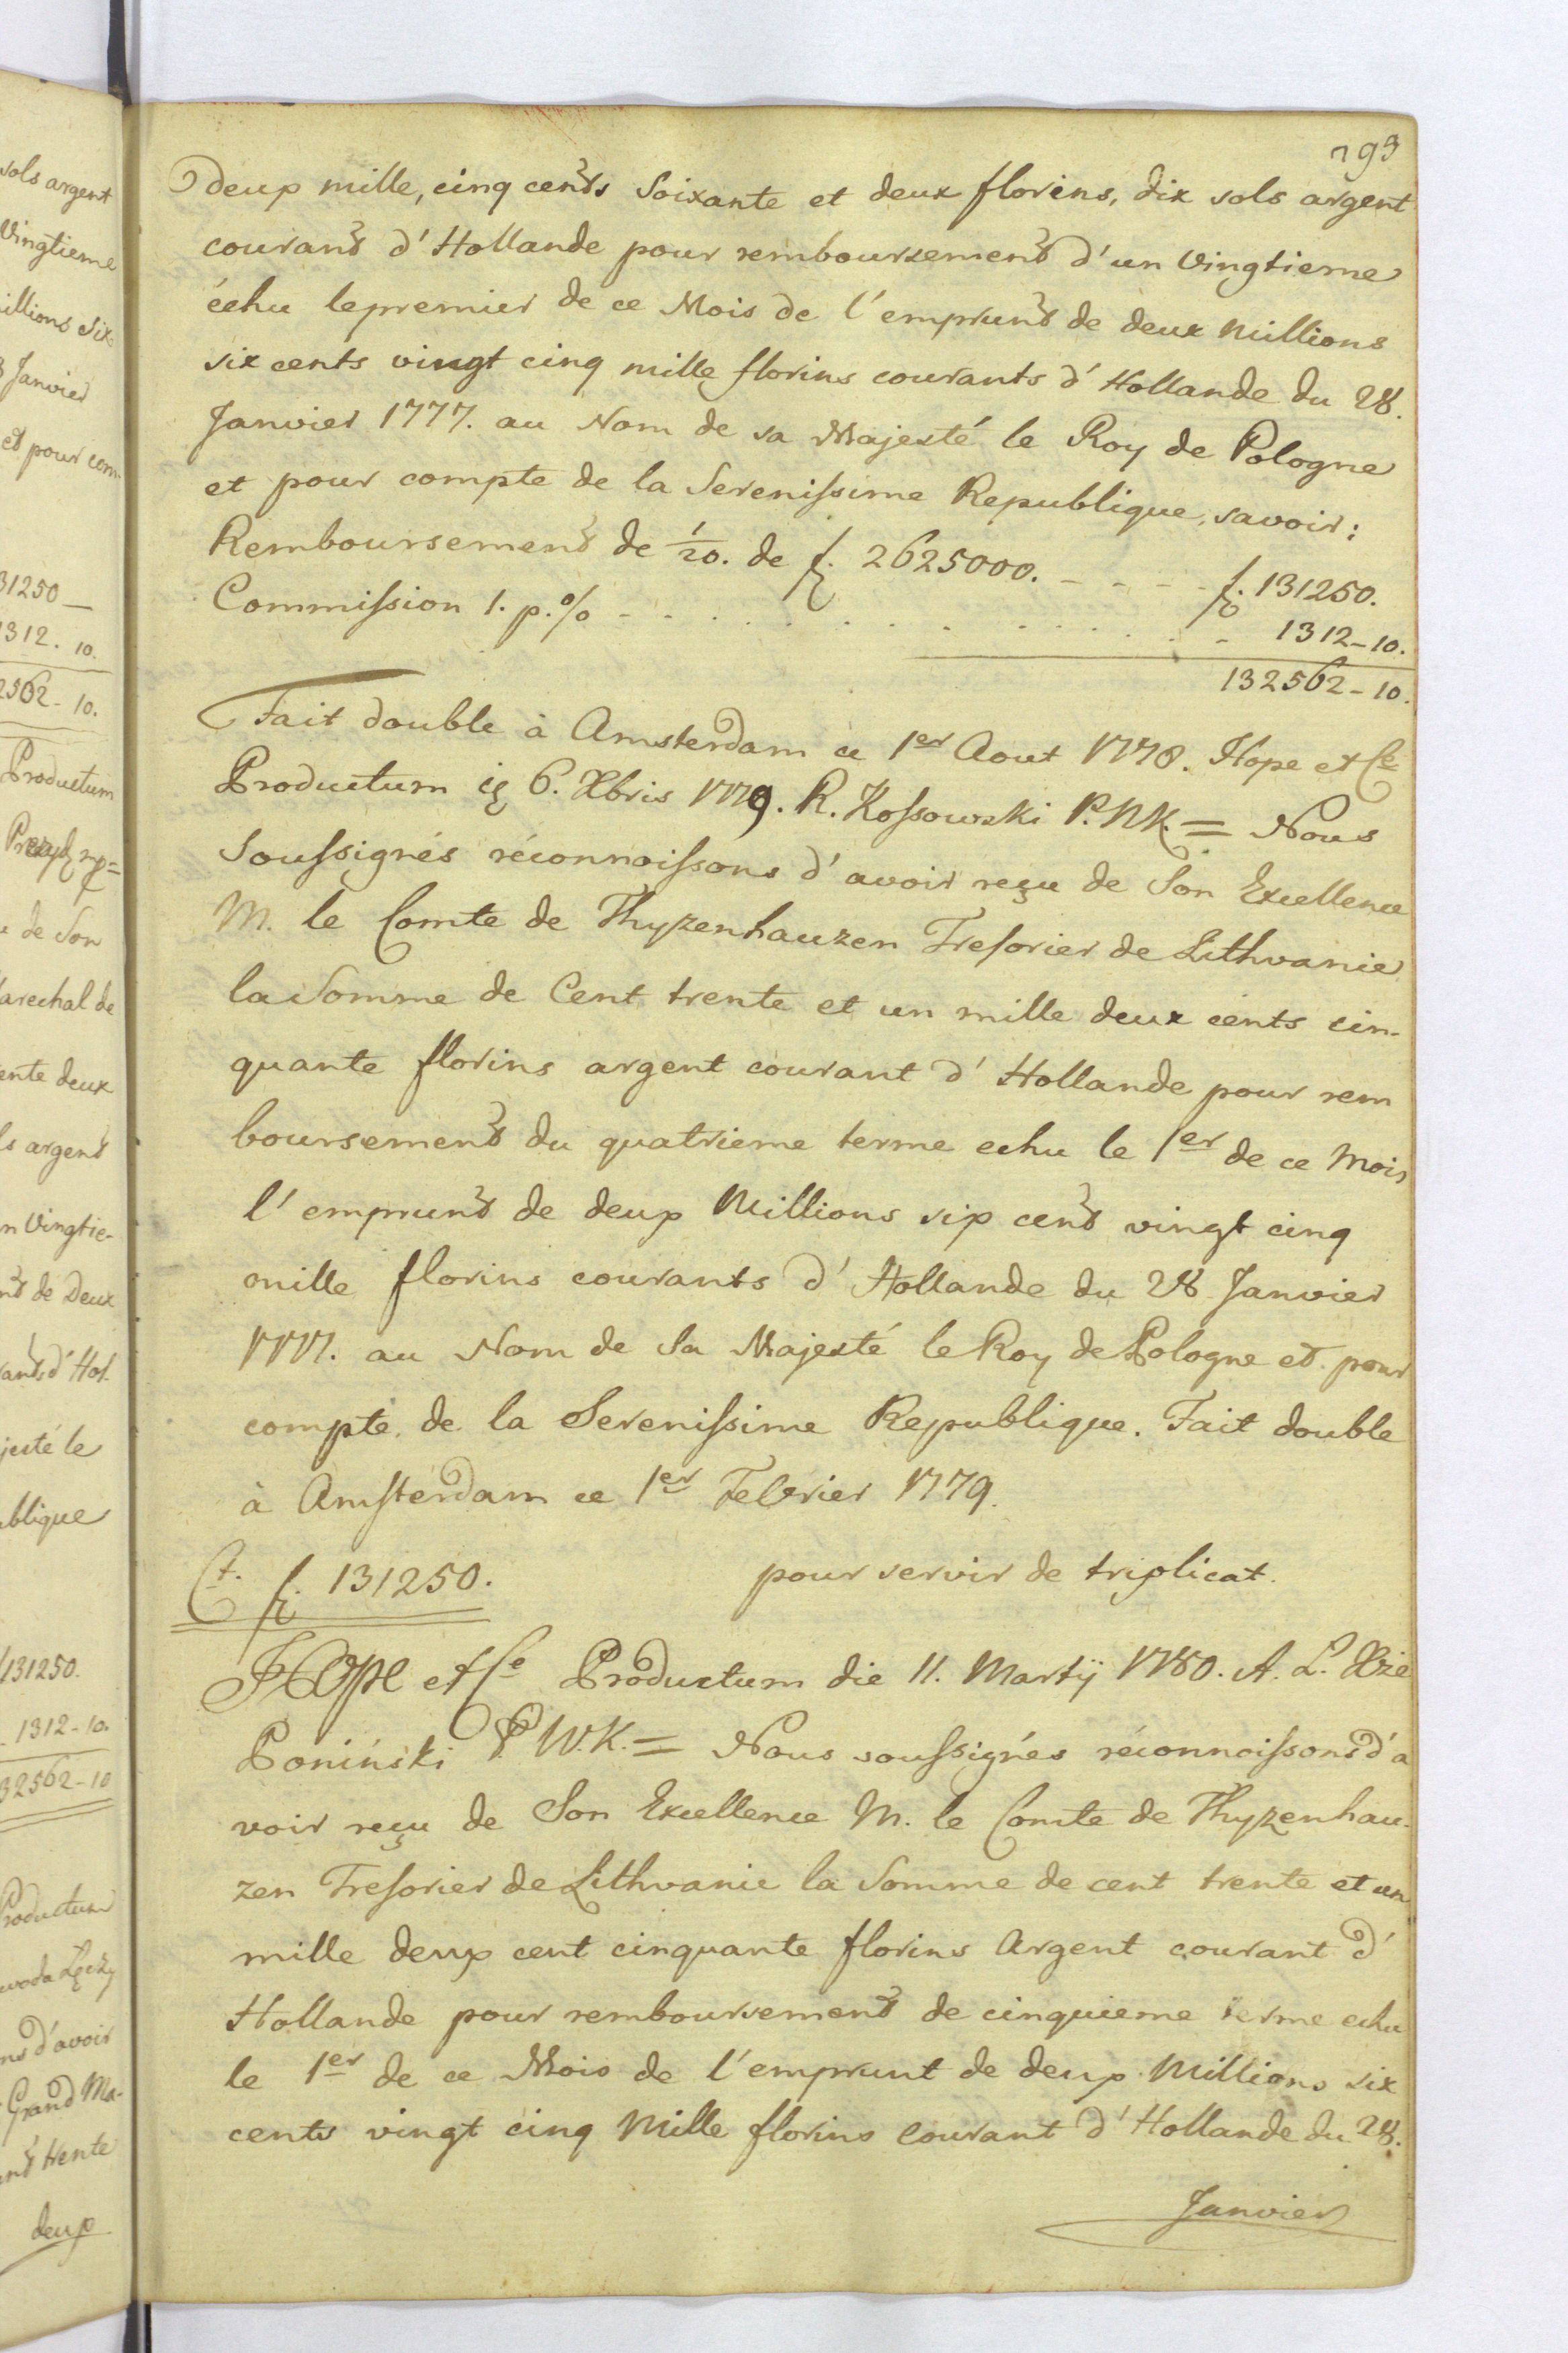 793
deux mille, cinq cents Soixante et deux florins, dix sols argent
courant d'Hollande pour remboursement d'un Vingtieme
échu lepremier de ce Mois de l'emprunt de deux Millions
six cents vingt cinq mille florins courants d'Hollande du 28.
Janvier 1777. au Nom de sa Majesté le Roy de Pologne
et pour compte de la Serenissime Republique, savoir:
Remboursement de 1/20. de f. 2625000. - - - - f. 131250.
Commission 1. p.% - - . . . . . . . . . . - 1312-10.
132562-10.
Fait double à Amsterdam ce 1er Aout 1778. Hope et Ce
Productum 6. Xbris 1779. R. Kossowski P.N.K. = Nous
Soussignés réconnoissons d'avoir reçu de Son Excellence
M. le Comte de Thyzenhauzen Tresorier de Lithvanie
la Somme de Cent trente et un mille deux cents cin-
quante florins argent courant d'Hollande pour rem
boursement du quatrieme terme echu le 1er de ce Mois
l'emprunt de deux Millions six cent vingt cinq
mille florins courants d'Hollande du 28 Janvier
1777. au Nom de Sa Majesté le Roy de Pologne et pour
compte de la Serenissime Republique. Fait double
à Amsterdam ce 1er Febvrier 1779.
Ct. f. 131250. pour servir de triplicat.
Hope et Ce Productum die 11. Martij 1780. A. L. Xże
Poniński P.W.K. = Nous soussignés réconnoissons d'a
voir reçu de Son Excellence M. le Comte de Thyzenhau-
zen Tresorier de Lithvanie la Somme de cent trente et un
mille deux cent cinquante florins Argent courant d'
Hollande pour remboursement de cinquieme terme echu
le 1er de ce Mois de l'emprunt de deux Millions six
cents vingt cinq Mille florins courant d'Hollande du 28.
Janvier